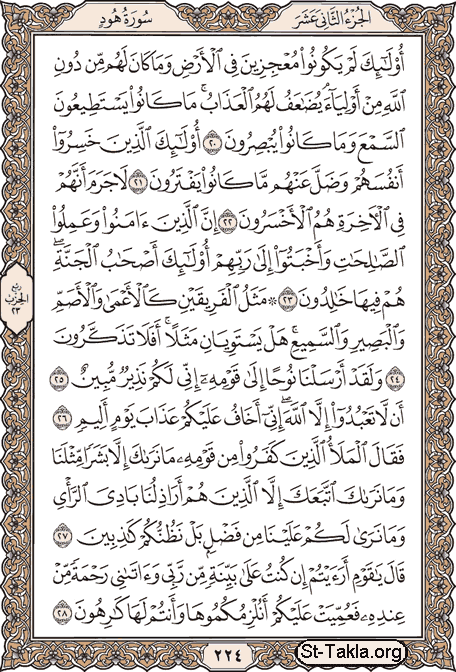 الجزء الثاني عشر
سورة هود
أُوْلَٰٓئِكَ لَمْ يَكُونُواْ مُعْجِزِينَ فِى ٱلْأَرْضِ وَمَا كَانَ لَهُم مِّن دُونِ
ٱللَّهِ مِنْ أَوْلِيَآءَ ۘ يُضَٰعَفُ لَهُمُ ٱلْعَذَابُ ۚ مَا كَانُواْ يَسْتَطِيعُونَ
ٱلسَّمْعَ وَمَا كَانُواْ يُبْصِرُونَ ٢٠ أُوْلَٰٓئِكَ ٱلَّذِينَ خَسِرُوٓاْ
أَنفُسَهُمْ وَضَلَّ عَنْهُم مَّا كَانُواْ يَفْتَرُونَ ٢١ لَا جَرَمَ أَنَّهُمْ
فِى ٱلْأَخِرَةِ هُمُ ٱلْأَخْسَرُونَ ٢٢ إِنَّ ٱلَّذِينَ ءَامَنُواْ وَعَمِلُواْ
ٱلصَّٰلِحَٰتِ وَأَخْبَتُوٓاْ إِلَىٰ رَبِّهِمْ أُوْلَٰٓئِكَ أَصْحَٰبُ ٱلْجَنَّةِ ۖ
هُمْ فِيهَا خَٰلِدُونَ ٢٣ ۞ مَثَلُ ٱلْفَرِيقَيْنِ كَٱلْأَعْمَىٰ وَٱلْأَصَمِّ
وَٱلْبَصِيرِ وَٱلسَّمِيعِ ۚ هَلْ يَسْتَوِيَانِ مَثَلًا ۚ أَفَلَا تَذَكَّرُونَ
٢٤ وَلَقَدْ أَرْسَلْنَا نُوحًا إِلَىٰ قَوْمِهِۦٓ إِنِّى لَكُمْ نَذِيرٌ مُّبِينٌ ٢٥
أَن لَّا تَعْبُدُوٓاْ إِلَّا ٱللَّهَ ۖ إِنِّىٓ أَخَافُ عَلَيْكُمْ عَذَابَ يَوْمٍ أَلِيمٍ ٢٦
فَقَالَ ٱلْمَلَأُ ٱلَّذِينَ كَفَرُواْ مِن قَوْمِهِۦ مَا نَرَىٰكَ إِلَّا بَشَرًا مِّثْلَنَا
وَمَا نَرَىٰكَ ٱتَّبَعَكَ إِلَّا ٱلَّذِينَ هُمْ أَرَاذِلُنَا بَادِىَ ٱلرَّأْىِ
وَمَا نَرَىٰ لَكُمْ عَلَيْنَا مِن فَضْلٍۭ بَلْ نَظُنُّكُمْ كَٰذِبِينَ ٢٧
قَالَ يَٰقَوْمِ أَرَءَيْتُمْ إِن كُنتُ عَلَىٰ بَيِّنَةٍ مِّن رَّبِّى وَءَاتَىٰنِى رَحْمَةً مِّنْ
عِندِهِۦ فَعُمِّيَتْ عَلَيْكُمْ أَنُلْزِمُكُمُوهَا وَأَنتُمْ لَهَا كَٰرِهُونَ ٢٨
ربع
الحزب
٢٣
٢٢٤
St-Takla.org